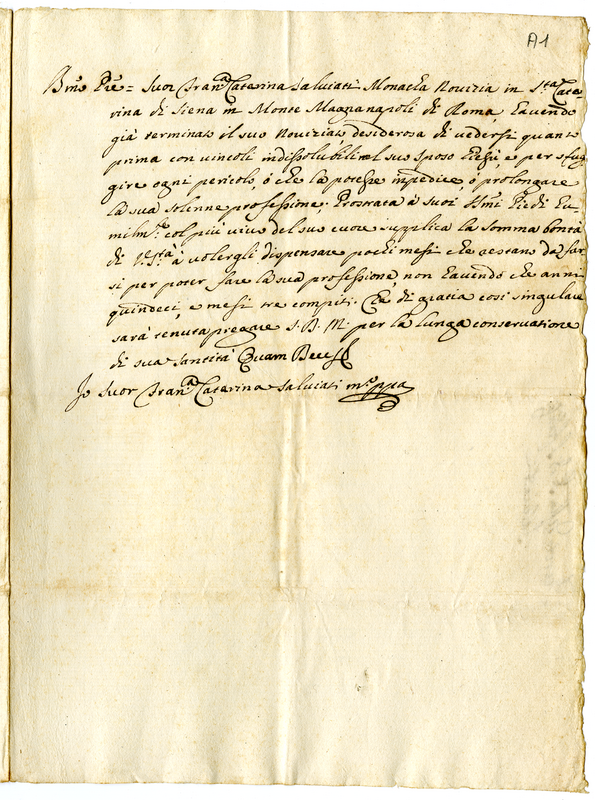 A1
Bmo Pre = Suor Franca Caterina Salviati Monacha Novizia in Sta Cate-
rina di Siena in Monte Magnanapoli di Roma, havendo
già terminato il suo Noviziato desiderosa di vedersi quanto
prima con vincoli indissolubili al suo Sposo Giesù, e per sfug
gire ogni pericolo, ò che la potesse impedire ò prolongare
la sua solenne professione; Prostrata à suoi SSmi Piedi hu-
milmte col più vivo del suo cuore supplica la somma bontà
di V. Stà à volergli dispensare pochi mesi che restano da far
si per poter fare la sua professione, non havendo che anni
quindeci e mesi tre compiti. Che di gratia così singulare
sarà tenuta pregare S. D. M. per la lunga conservatione
di sua Santità Quam Deus
Io Suor Franca Caterina Salviati mo ppa